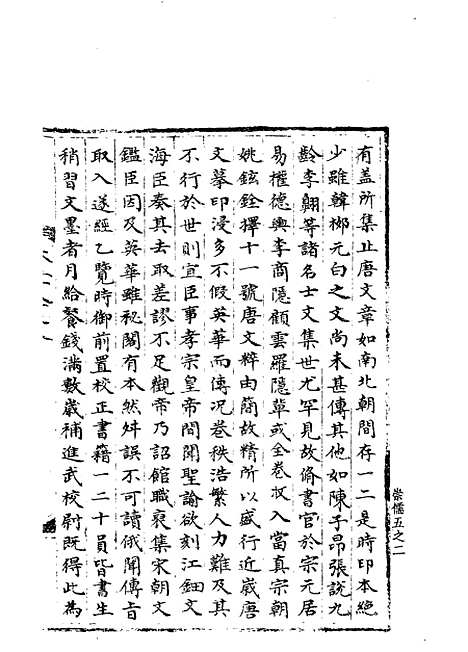 崇儒五之二
有盖所集止唐文章如南北朝間存一二是時印本絶
少雖韓栁元白之文尚未甚傳其他如陳子昂張說九
齡李翺等諸名士文集世尤罕見故脩書官於宗元居
易權德輿李商隱顧雲羅隱軰或全卷收入當真宗朝
姚鉉銓擇十一號唐文粹由簡故精所以盛行近崴唐
文摹印浸多不假英華而傳况卷秩浩繁人力難及其
不行於世則宜臣事孝宗皇帝間聞聖諭欲刻江鈿文
海臣奏其去取差謬不足觀帝乃詔館職裒集宋朝文
鑑臣因及英華雖秘閣有本然舛誤不可讀俄聞傳旨
取入遂經乙覽時御前置校正書籍一二十員皆書生
稍習文墨者月給餐錢滿數崴補進武校尉既得此為